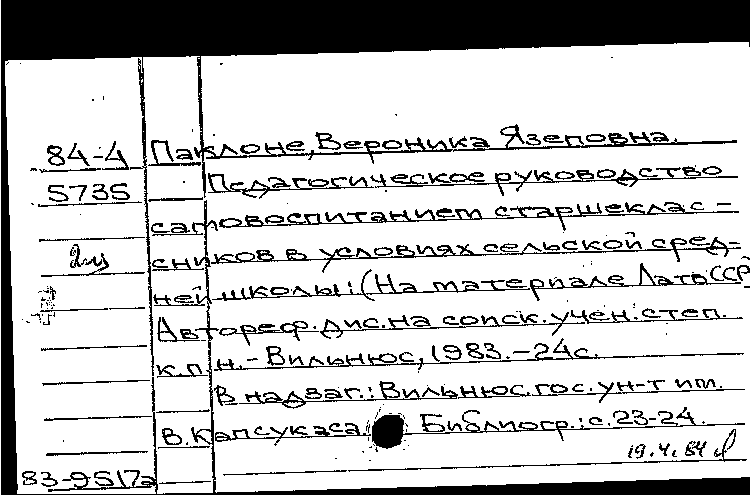 84-4 Паклоне, Вероника Язеповна.
5735 Педагогическое руководство
самовоспитанием старшеклас-
2 сников в условиях сельской сред-
ней школы: (На материале Латв ССР)
Автореф. дис. на соиск. учен. степ.
к.п.н. - Вильнюс, 1983. - 24 с.
В надзаг.: Вильнюс. гос. ун-т им.
В. Капсукаса. Библиогр.: с. 23-24.
19.4.84
83-9517а